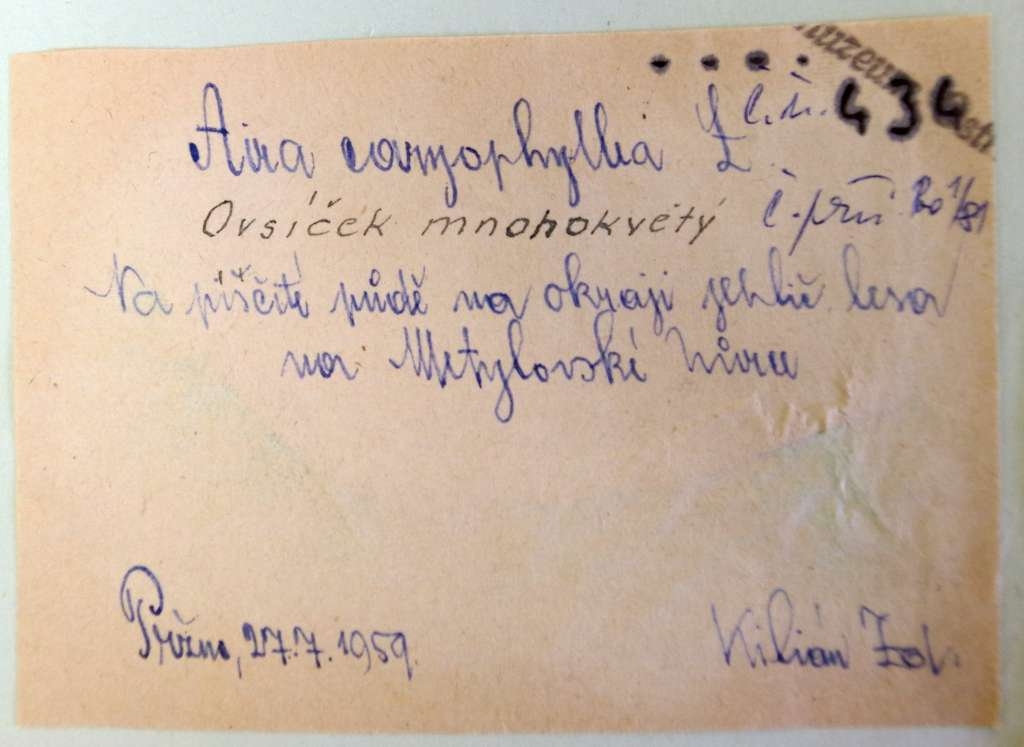 č. i. 434
Aira caryophyllea L.
Ovsíček mnohokvětý č. přír. 20 1/81
Na písčité půdě na okraji jehlič. lesa
na Metylovské hůrce
Pržno, 27.7.1959.
Kilián Zd.